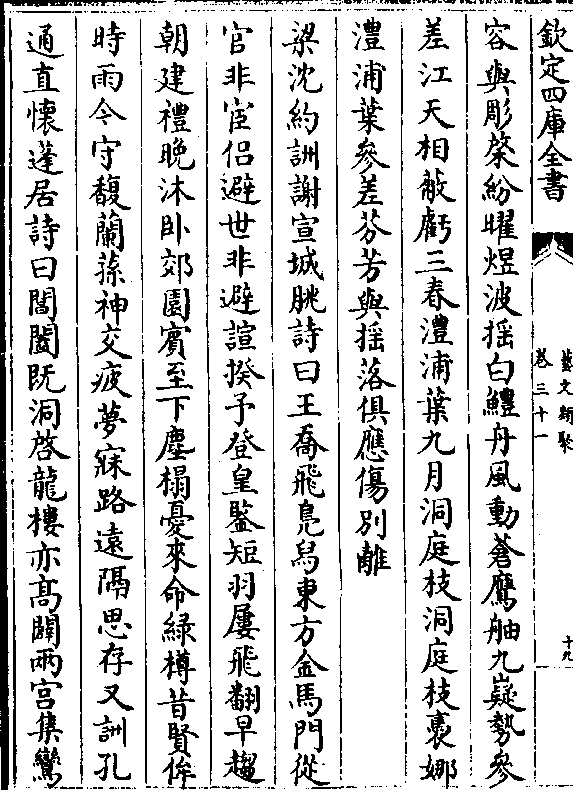 欽定四庫全書
藝文類聚
卷三十一
十九
容與彫棨紛曜煜波揺白鱧舟風動蒼鷹舳九嶷勢參
差江天相蔽虧三春澧浦葉九月洞庭枝洞庭枝裊娜
澧浦葉參差芬芳與揺落俱應傷別離
梁沈約詶謝宣城朓詩曰王喬飛鳬舄東方金馬門從
官非宦侣避世非避諠揆予登皇鑒短羽屢飛翻早趨
朝建禮晩沐卧郊園賓至下塵榻憂來命緑樽昔賢侔
時雨今守馥蘭蓀神交疲夢寐路遠隔思存又詶孔
通直懷蓬居詩曰閶闔既洞啓龍樓亦髙闢兩宫集鸞